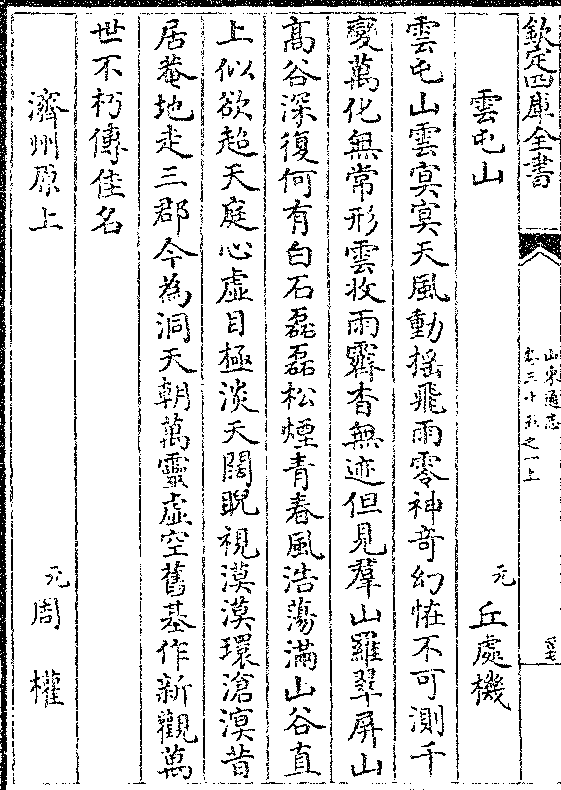 欽定四庫全書
山東通志
卷三十五之一上
雲屯山
元 丘處機
雲屯山雲寞寞天風動摇飛雨零神竒幻恠不可測千
變萬化無常形雲收雨霽杳無迹但見羣山羅翠屏山
髙谷深復何有白石磊磊松煙青春風浩蕩滿山谷直
上似欲超天庭心虚目極淡天闊睨視漠漠環滄溟昔
居菴地走三郡今為洞天朝萬靈虚空舊基作新觀萬
世不朽傳佳名
濟州原上
元 周權